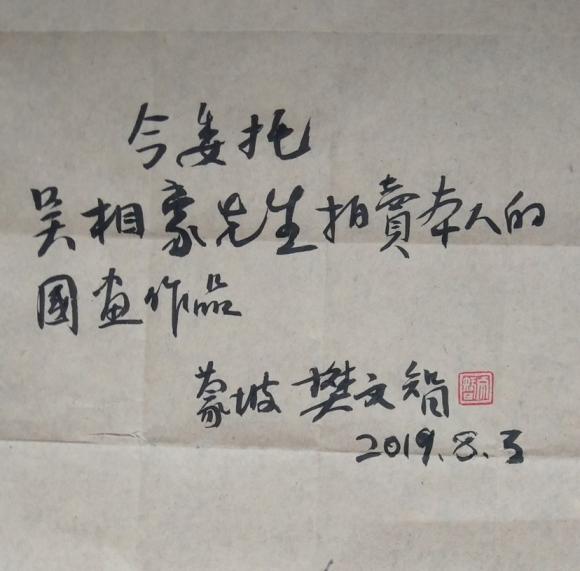 今委托
吴相豪先生拍賣本人的
國畫作品
蒙坡 樊文智
2019.8.3